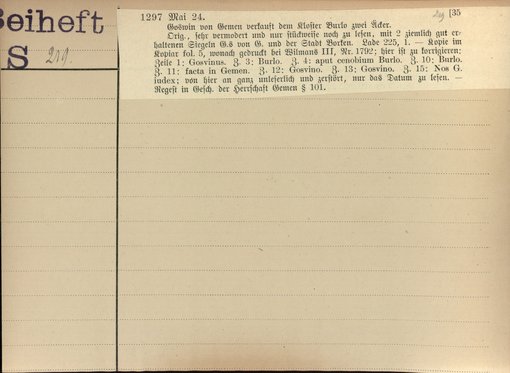 Beiheft
S 219
1297 Mai 24. [35
Goswin von Gemen verkauft dem Kloster Burlo zwei Äcker.
Orig., sehr vermodert und nur stückweise noch zu lesen, mit 2 ziemlich gut er-
haltenen Siegeln G.s von G. und der Stadt Borken. Lade 225, 1. — Kopie im
Kopiar fol. 5, wonach gedruckt bei Wilmans III, Nr. 1792; hier ist zu korrigieren:
Zeile 1; Gosvinus. Z. 3; Burlo. Z. 4; aput cenobium Burlo. Z. 10; Burlo.
Z. 11; facta in Gemen. Z. 12; Gosvino. Z. 13; Gosvino. Z. 15; Nos G.
index; von hier an ganz unleserlich und zerstört, nur das Datum zu lesen. —
Regest in Gesch. der Herrschaft Gemen § 101.